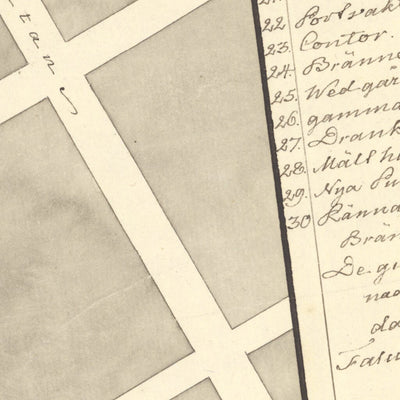 tan
22 Portvak
23. Contor.
24. Bränne
25. Wedgår
26. gamma
27. Drank
28. Mälth
29. Nya Pu
30 Ränna
Brän
De gu
nad
da
Falu